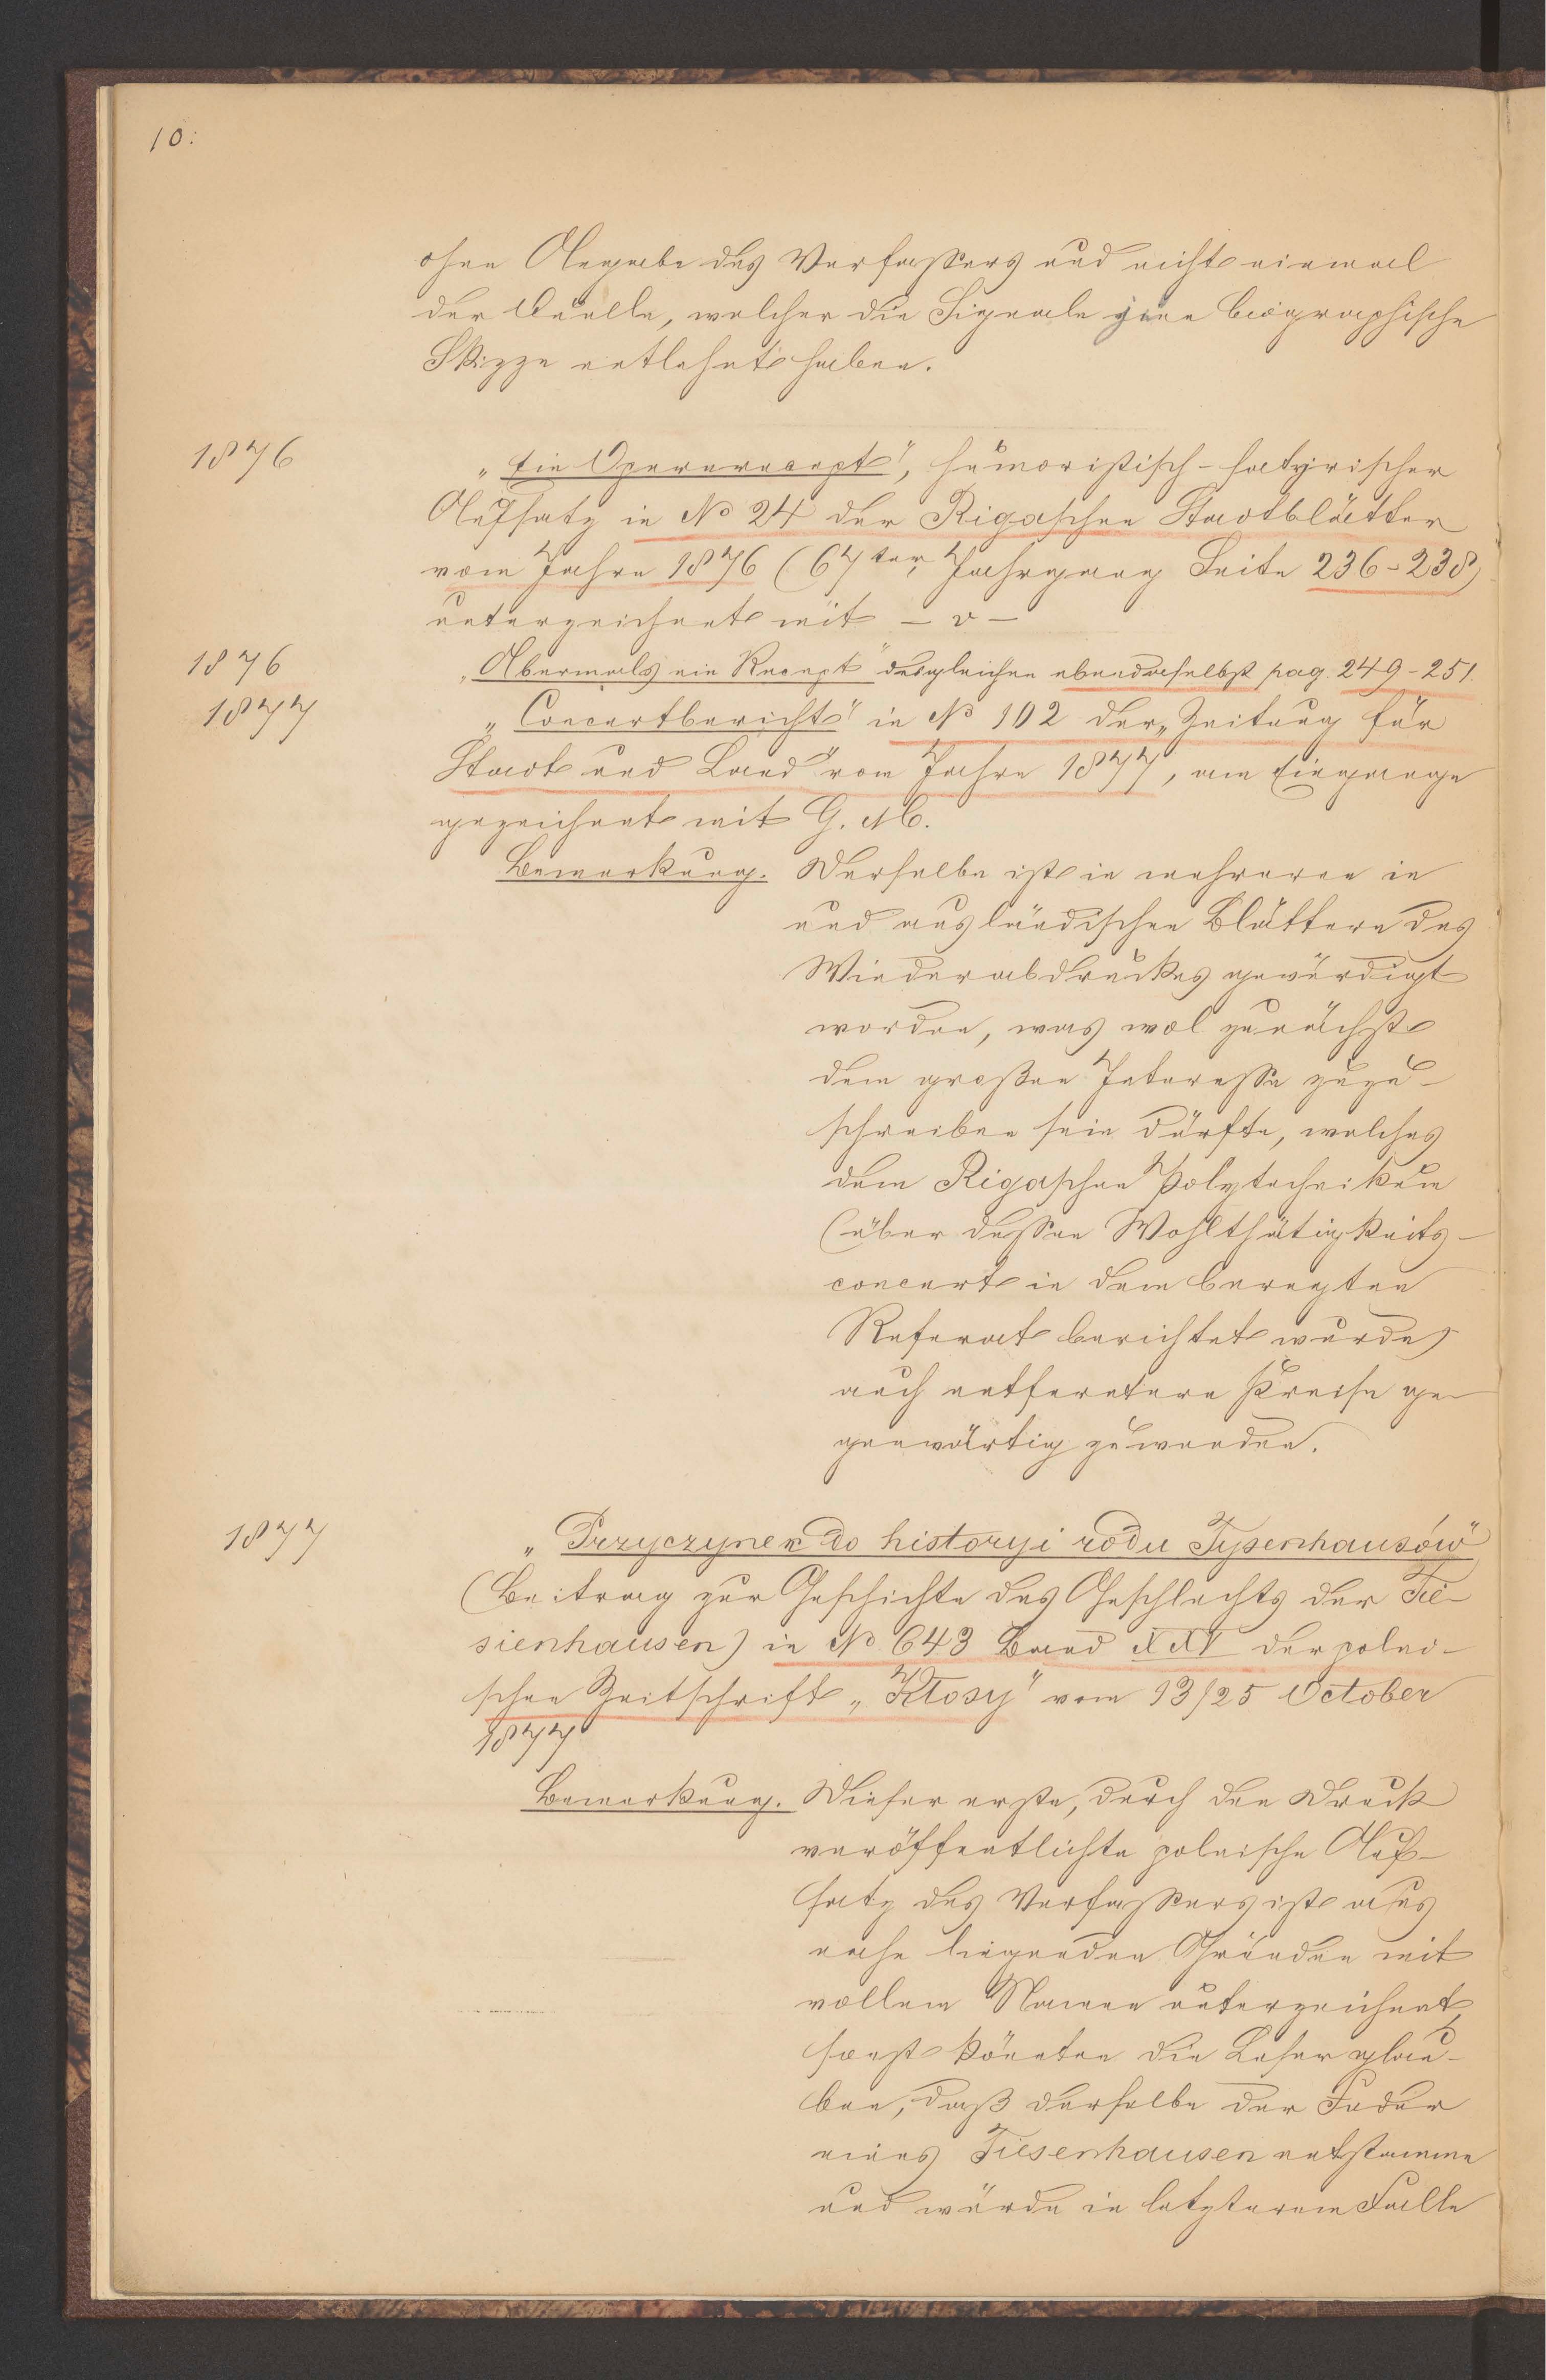 10.
ohne Angabe des Verfassers und nicht einmal
der Quelle, welcher die Signale jene biographische
Skizze entlehnt haben.
1876
„Ein Opernrecept", humoristisch-satyrischer
Aufsatz in No 24 der Rigaschen Stadtblätter
vom Jahre 1876 (67ter Jahrgang Seite 236-238)
unterzeichnet mit - v -
1876
„Abermals ein Recept" desgleichen ebendaselbst pag. 249-251.
1877
„Concertbericht" in No 102 der „Zeitung für
Stadt und Land" vom Jahre 1877, am Eingange
gezeichnet mit G. M.
Bemerkung. Derselbe ist in mehreren in
und ausländischen Blättern des
Wiederabdruckes gewürdigt
worden, was wol zunächst
dem großen Interesse zuzu-
schreiben sein dürfte, welches
dem Rigaschen Polytechnikum
(über dessen Wohlthätigkeits-
concert in dem beregten
Referat berichtet wurde)
auch entferntere Kreise ge-
genwärtig zuwenden.
1877
„Przyczynek do historyi rodu Tysenhausów"
(Beitrag zur Geschichte des Geschlechts der Tie-
sienhausen) in No 643 Band XXV der polni-
schen Zeitschrift „Kłosy" vom 13/25 October
1877
Bemerkung. Dieser erste, durch den Druck
veröffentlichte polnische Auf-
satz des Verfassers ist aus
nahe liegenden Gründen mit
vollem Namen unterzeichnet,
sonst könnten die Leser glau-
ben, daß derselbe der Feder
eines Tiesenhausen entstamme
und würde in letzterem Falle